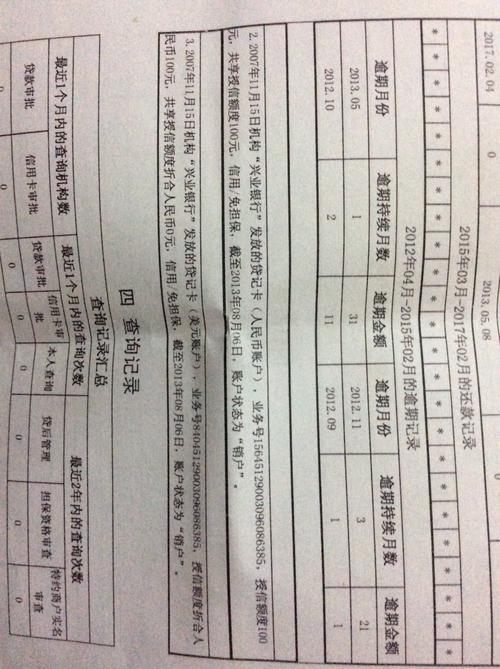 2017.02.04 0 2013.05.08
2015年03月-2017年02月的还款记录
* * * * * * * * * * * * * * * * * * * * * * * *
2012年04月-2015年02月的逾期记录
逾期月份 逾期持续月数 逾期金额 逾期月份 逾期持续月数 逾期金额
2013.05 1 31 2012.11 3 21
2012.10 2 11 2012.09 1 1
2. 2007年11月15日机构“兴业银行”发放的贷记卡（人民币账户），业务号15645129003096086385，授信额度100
元，共享授信额度100元，信用/免担保，截至2013年08月06日，账户状态为“销户”。
3. 2007年11月15日机构“兴业银行”发放的贷记卡（美元账户），业务号84045129003096086385，授信额度折合人
民币100元，共享授信额度折合人民币0元，信用/免担保，截至2013年08月06日，账户状态为“销户”。
四 查询记录
查询记录汇总
最近1个月内的查询机构数 最近1个月内的查询次数 最近2年内的查询次数
贷款审批 信用卡审批 贷款审批 信用卡审批 本人查询 贷后管理 担保资格审查 特约商户实名审查
0 0 0 0 0 0 0 0